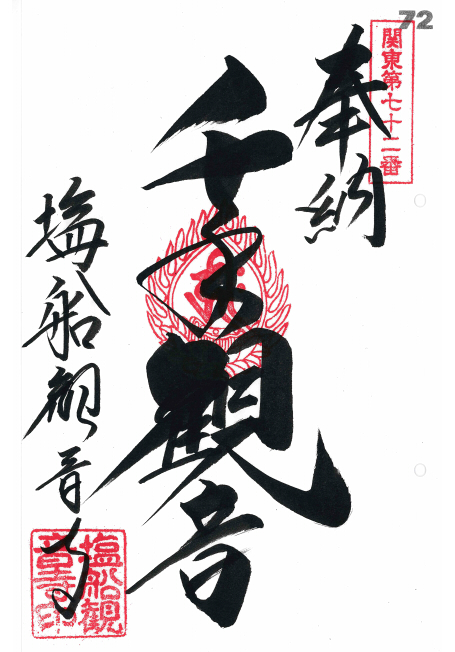 72
関東第七十二番
奉納
千手觀音
塩船観音寺
塩船観
音寺印